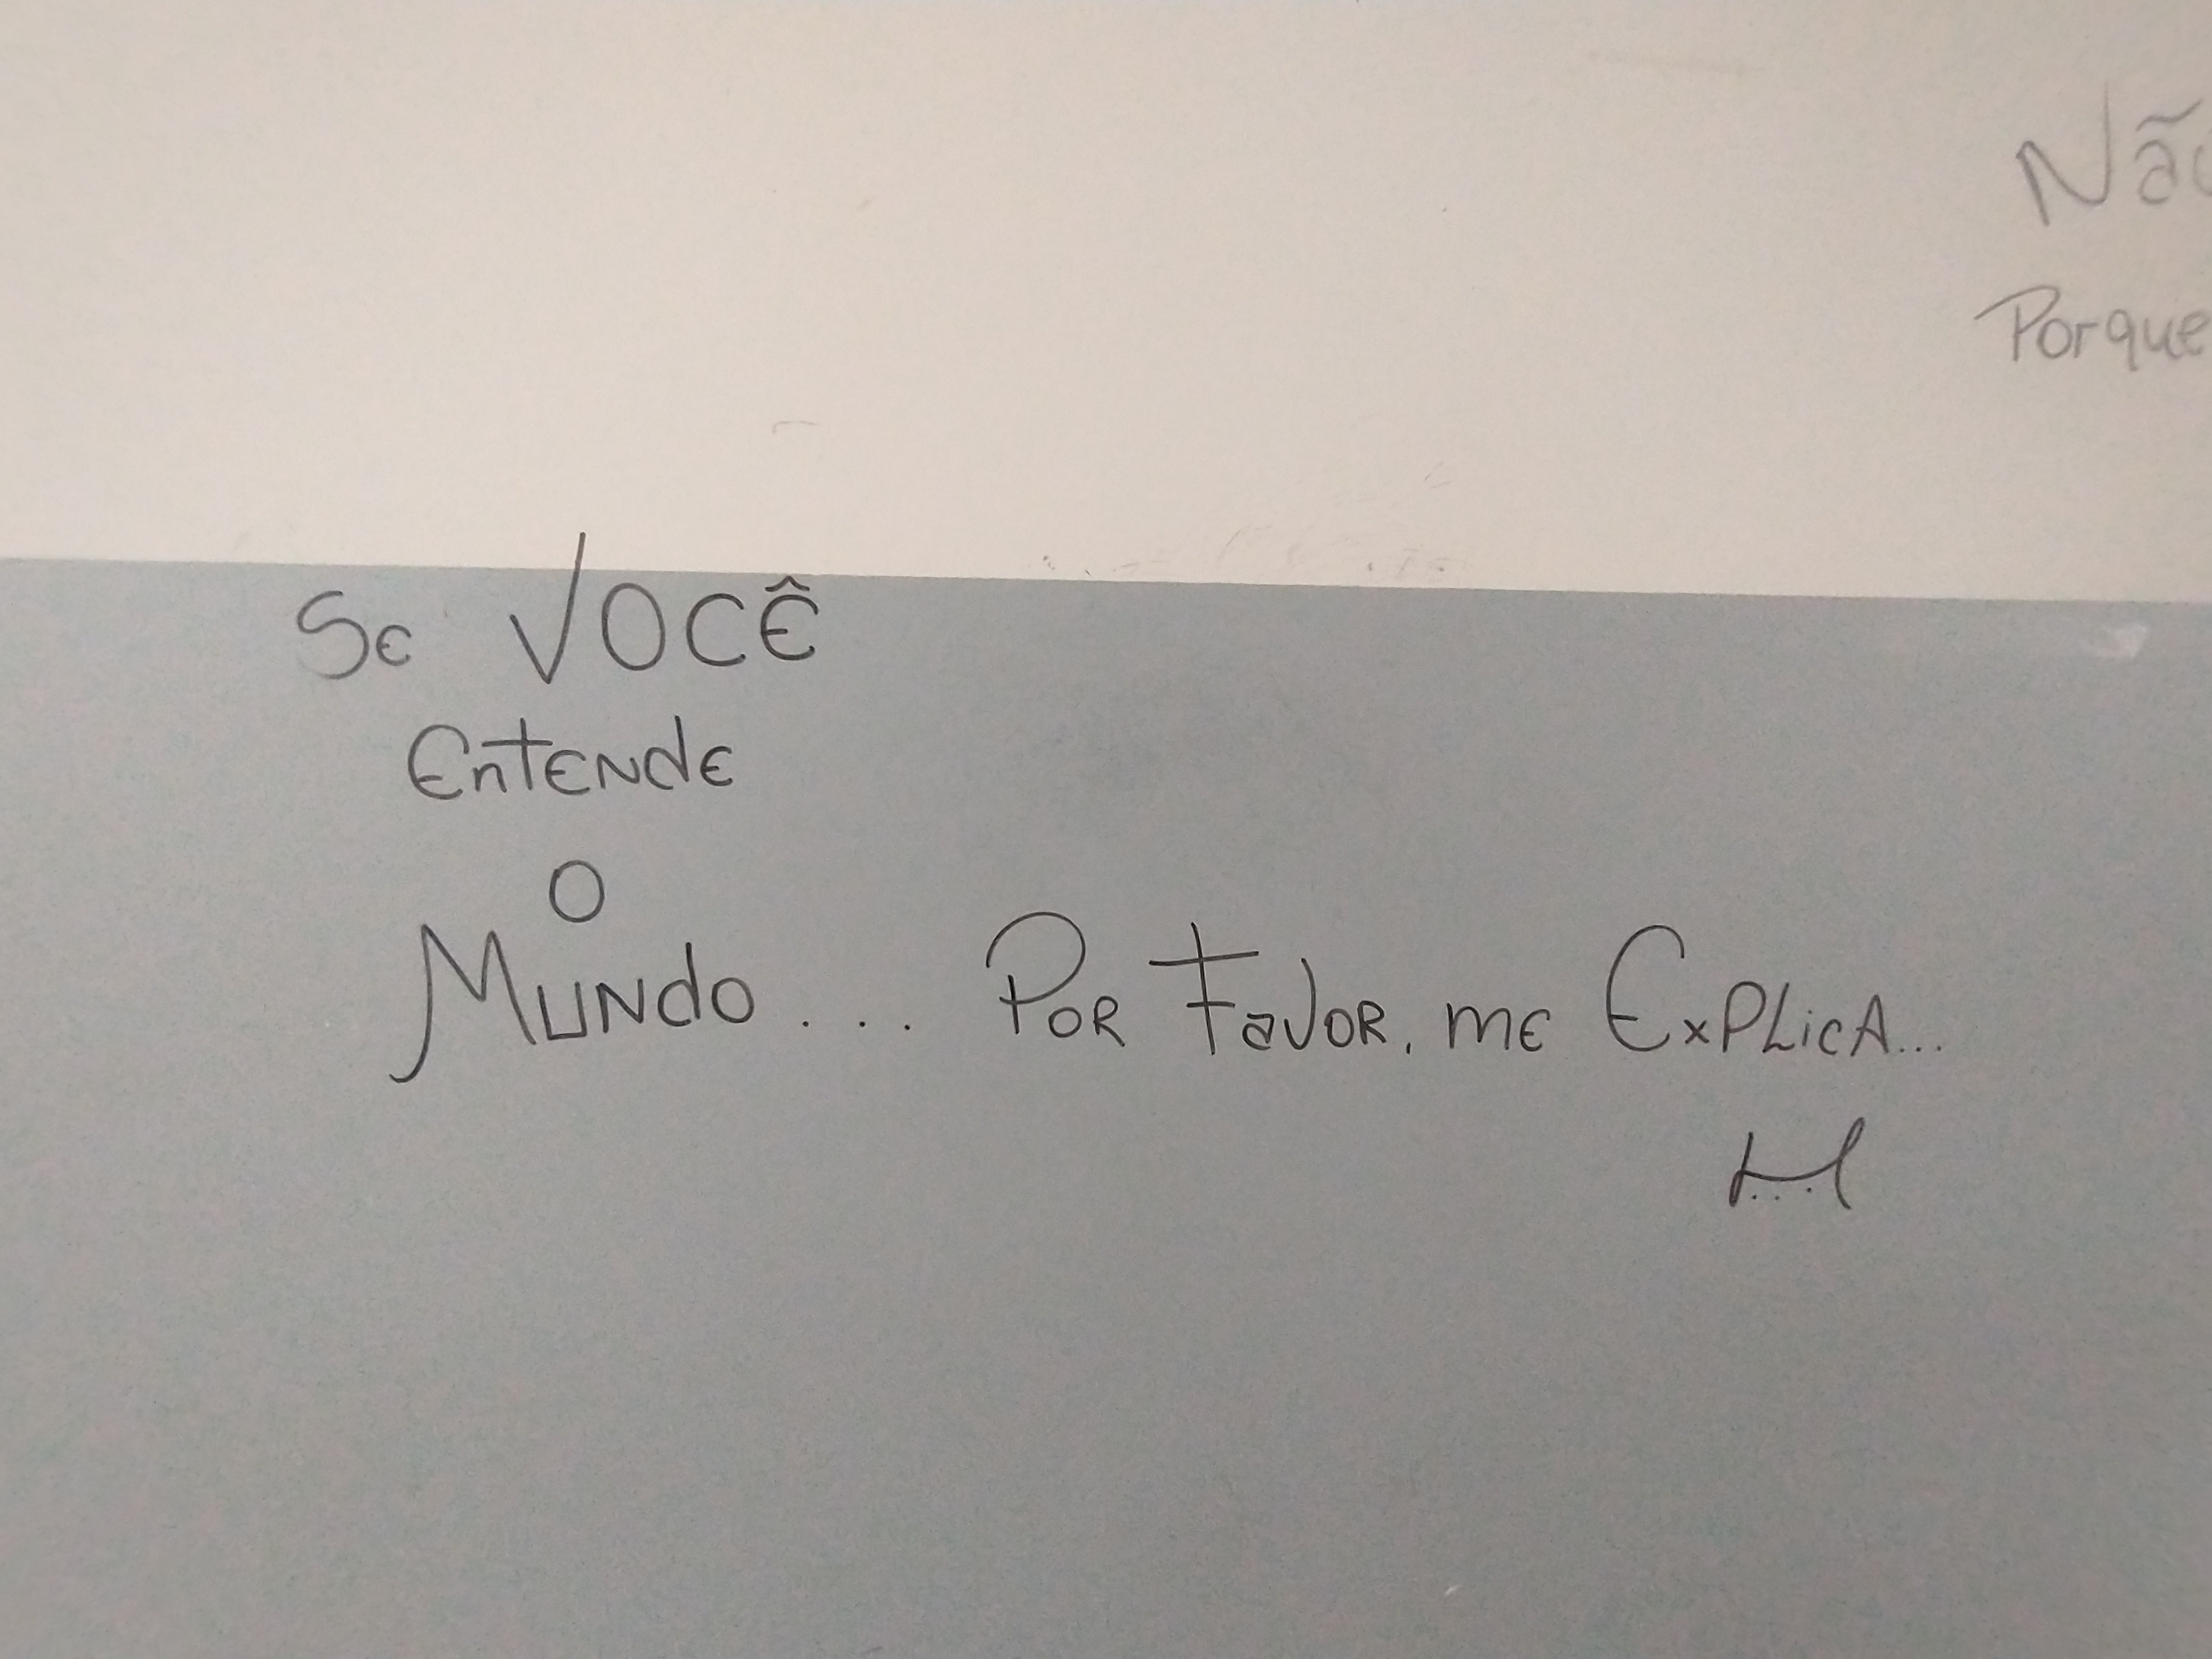 Não
Porque
Se VOCÊ
Entende
O
Mundo... Por Favor, me Explica...
H